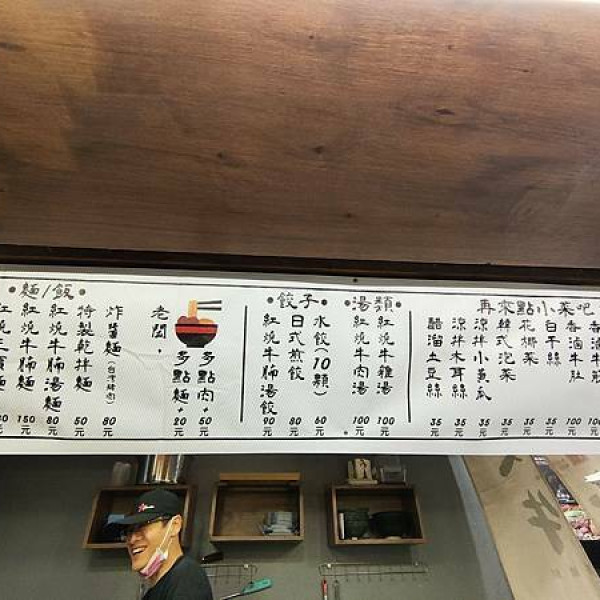 麵/飯
炸醬麵(台灣豬肉) 80元
特製乾拌麵 50元
紅燒牛腩湯麵 80元
紅燒牛腩麵 150元
老闆，
多點肉+50元
多點麵+20元
餃子
水餃(10顆) 60元
日式煎餃 80元
紅燒牛腩湯餃 90元
湯類
紅燒牛雜湯 100元
紅燒牛肉湯 100元
再來點小菜吧
香滷牛肚 100元
白干絲 35元
花椰菜 35元
韓式泡菜 35元
涼拌小黃瓜 35元
涼拌木耳絲 35元
醋溜土豆絲 35元